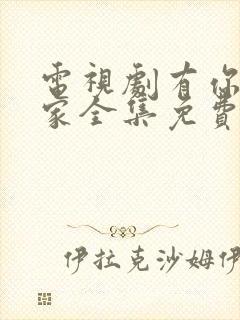 電視劇有你
家全集免費
伊拉克沙姆伊